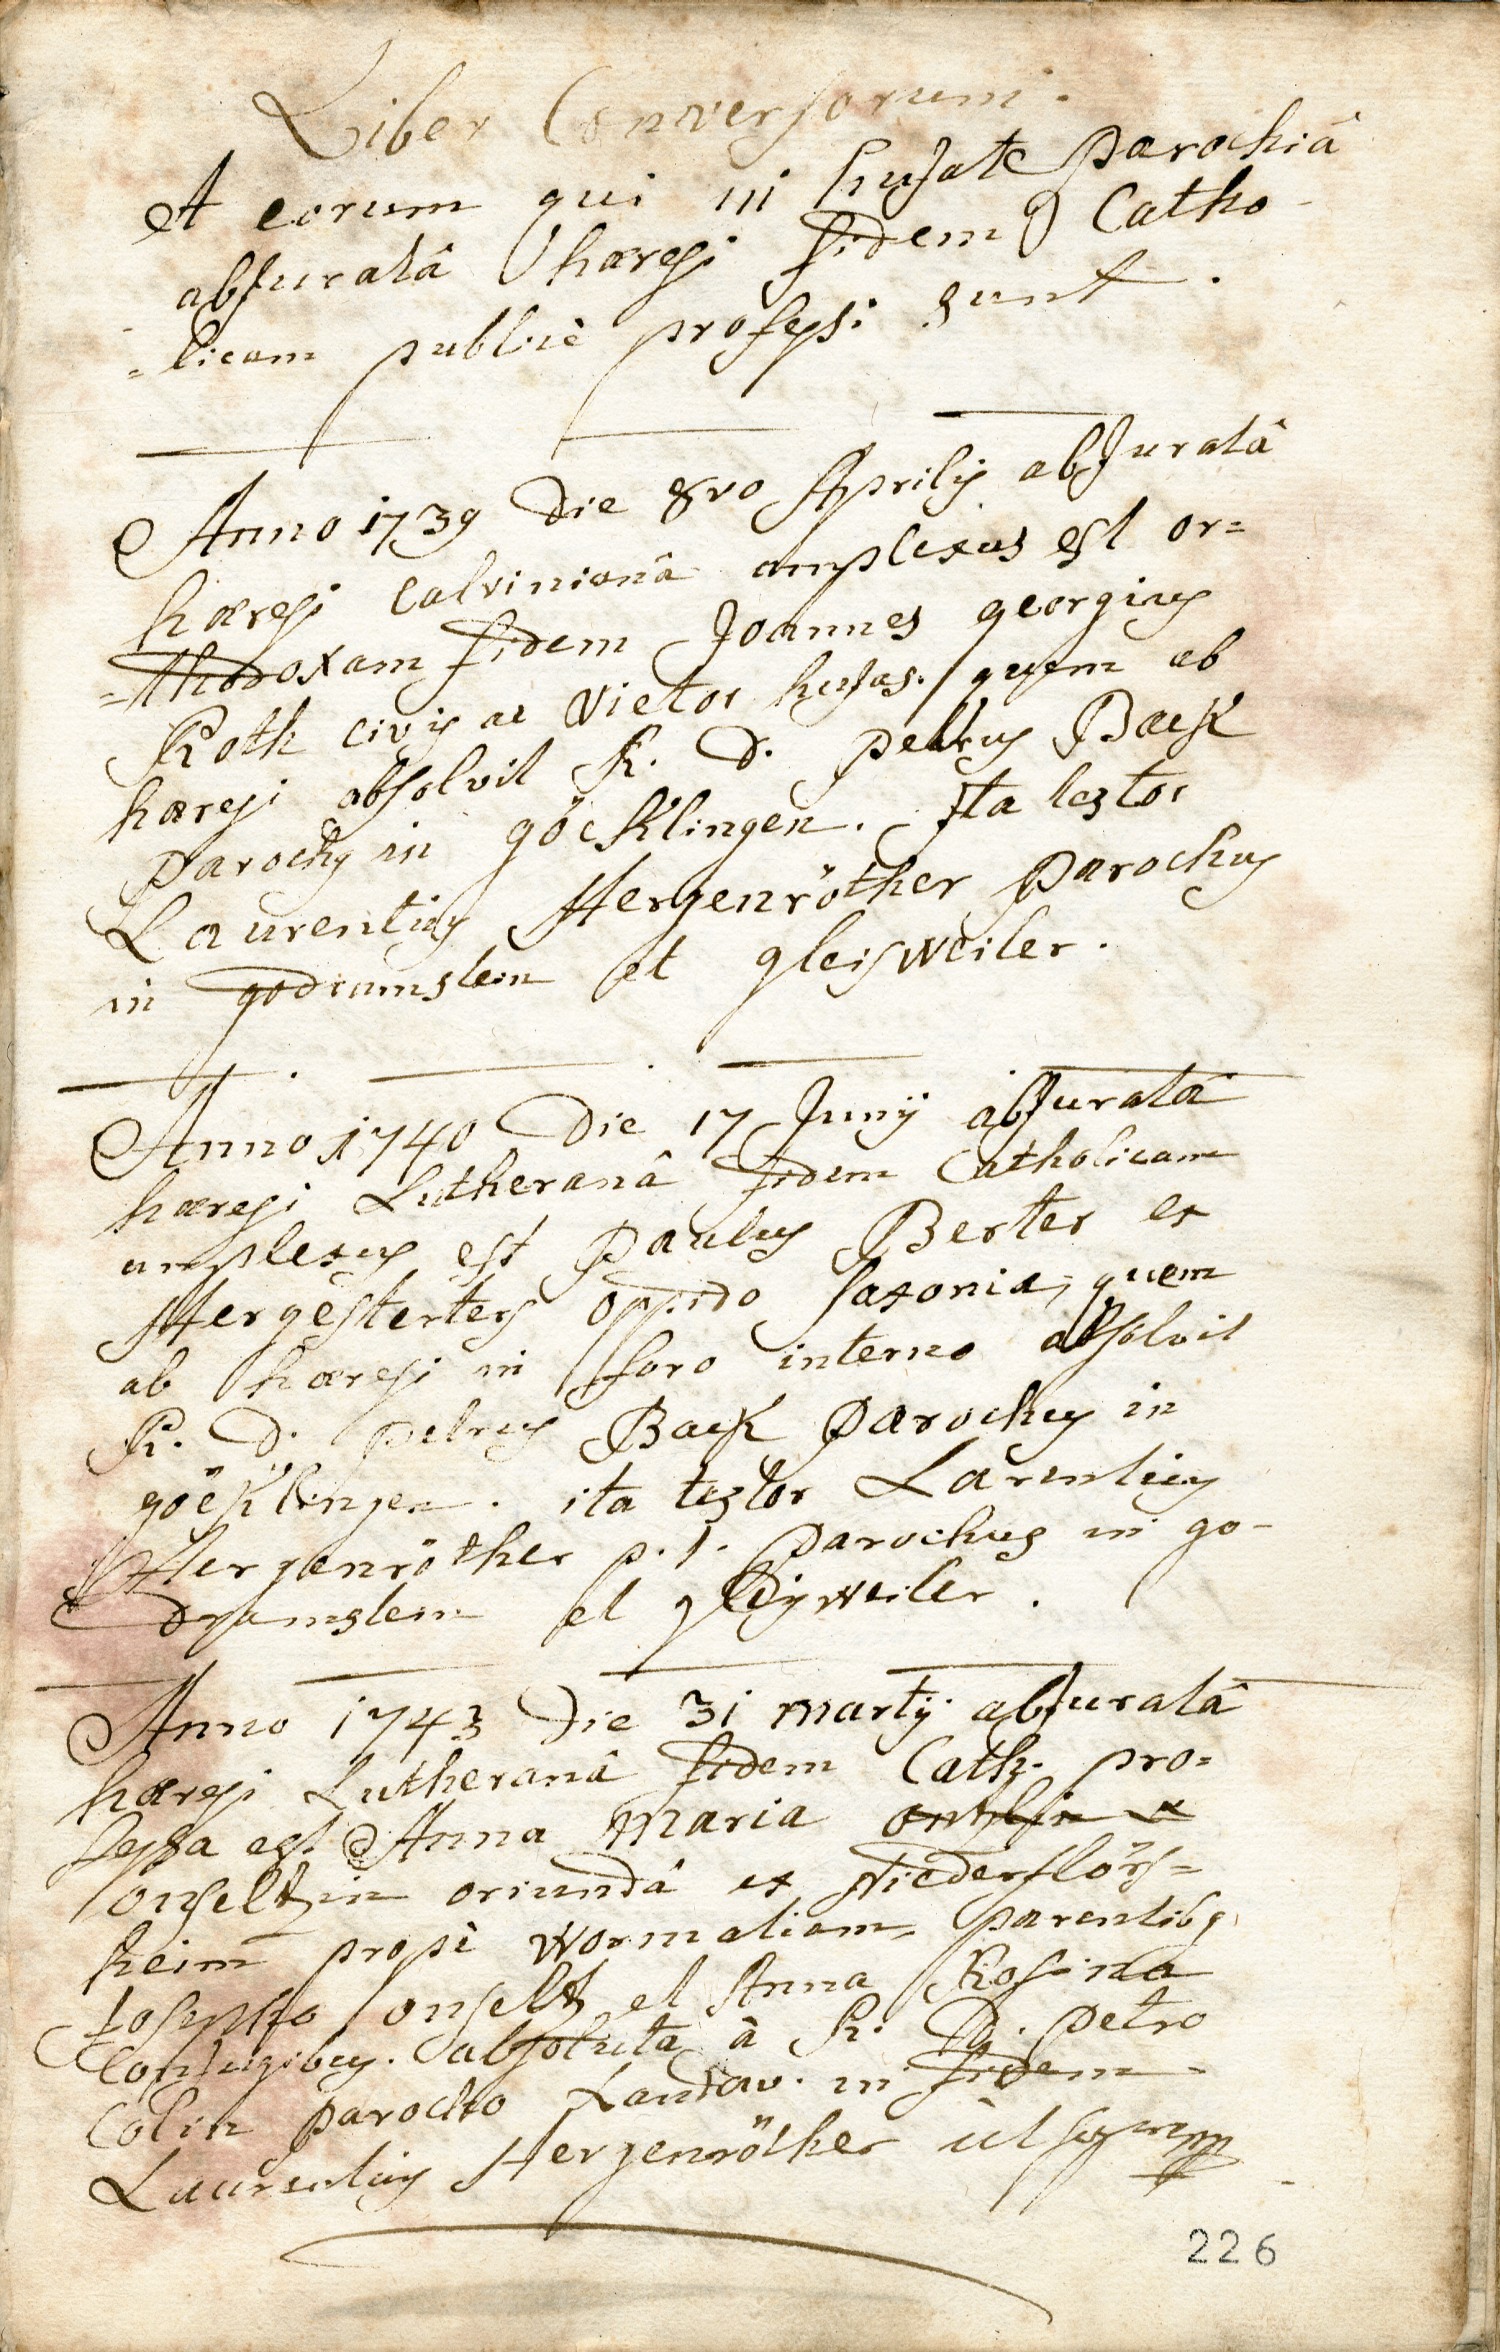 Liber Conversorum.
A eorum qui in hujate parochiâ
abjuratâ hæresi fidem Catho-
=licam publicè professi sunt.
Anno 1739 die 8vo Aprilis abjuratâ
hæresi calvinianâ amplexus est or=
=thodoxam fidem Joannes georgius
Roth civis ac vietor hujas. quem ab
hæresi absolvit R. D. petrus Back
parochus in göcklingen. Ita testor
Laurentius Hergenröther parochus
in godramstein et gleisweiler.
Anno 1740 die 17 Junij abjuratâ
hæresi Lutheranâ fidem Catholicam
amplexus est paulus Berter ex
Hergesterters oppido saxoniæ, quem
ab hæresi in foro interno absolvit
R. D. petrus Back parochus in
göcklingen. ita testor Larentius
Hergenröther p.t. parochus in go-
dramstein et gleisweiler.
Anno 1743 die 31 martij abjuratâ
hæresi Lutheranâ fidem Cath. pro=
fessa est Anna maria
onseltzin oriundâ ex Niederflörs=
heim propè wormatiam, parentibus
Josepho onseltz et Anna Rosina
Conjugibus. absoluta â R. D. petro
Colin parocho Landav. in fidem
Laurentius Hergenröther ut supra
226